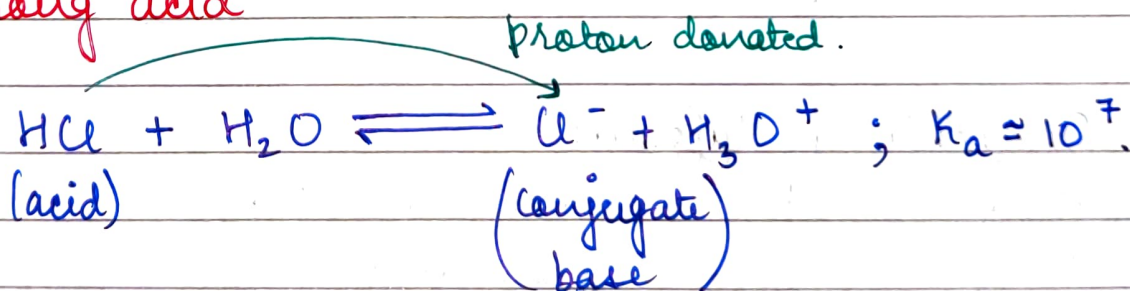 acid
proton donated.
HCl + H₂O ⇌ Cl⁻ + H₃O⁺ ; Kₐ ≃ 10⁷.
(acid) (conjugate
base)